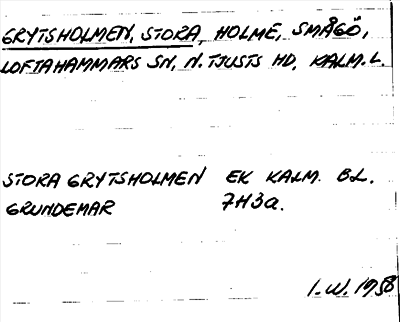 GRYTSHOLMEN, STORA, HOLME, SMÅGÖ,
LOFTAHAMMARS SN, N. TJUSTS HD, KALM. L.
STORA GRYTSHOLMEN EK KALM. BL.
GRUNDEMAR 7H3a.
I.W. 1958